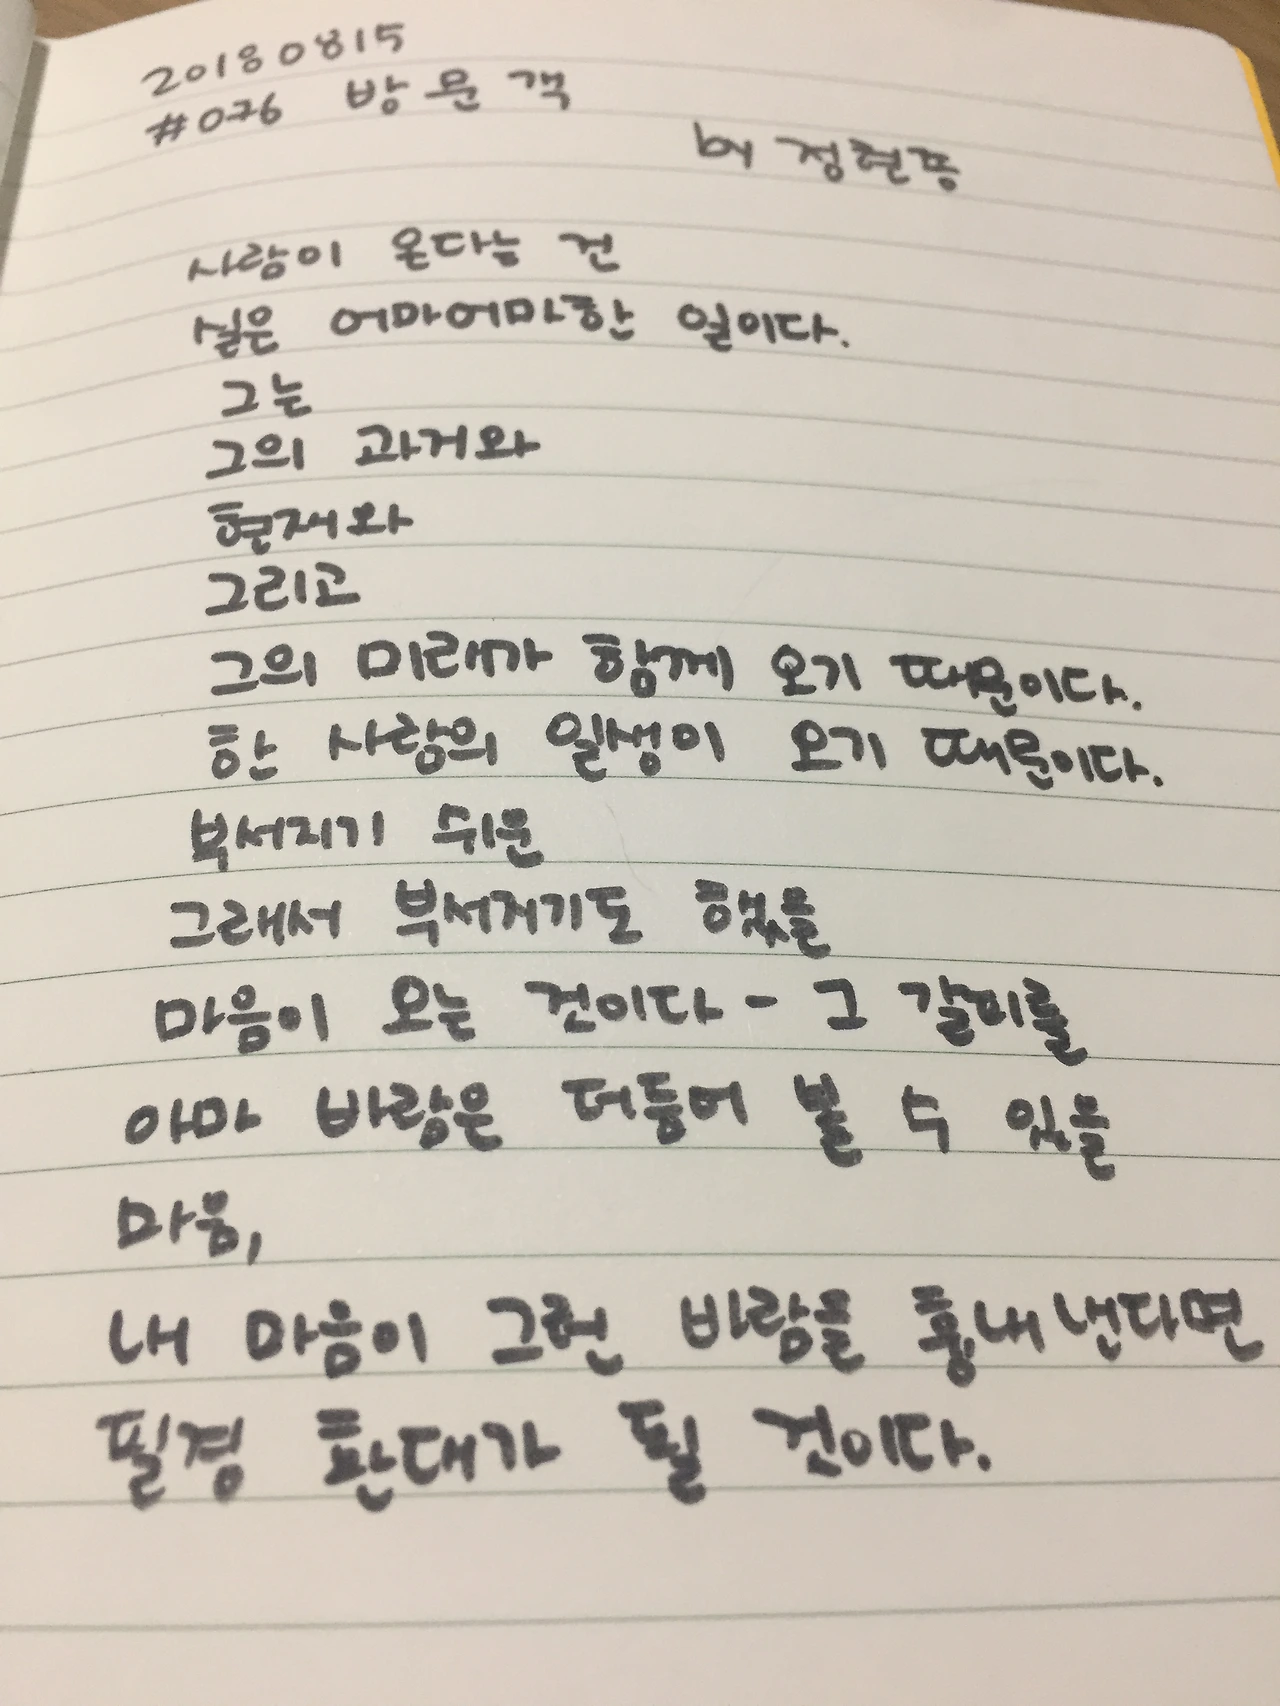 20180815
#076 방문객
by 정현종
사람이 온다는 건
실은 어마어마한 일이다.
그는
그의 과거와
현재와
그리고
그의 미래가 함께 오기 때문이다.
한 사람의 일생이 오기 때문이다.
부서지기 쉬운
그래서 부서지기도 했을
마음이 오는 것이다 - 그 갈피를
아마 바람은 더듬어 볼 수 있을
마음,
내 마음이 그런 바람을 흉내낸다면
필경 환대가 될 것이다.